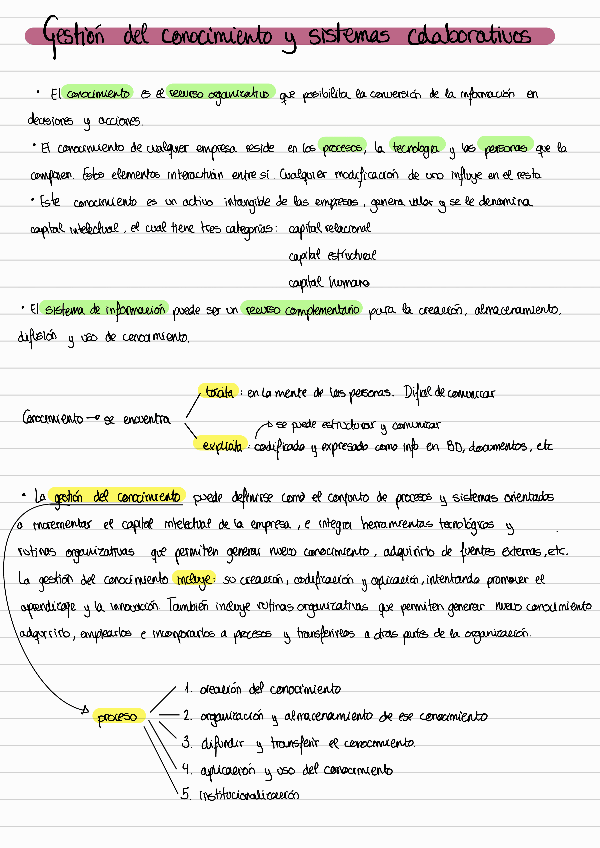 Gestión del conocimiento y sistemas colaborativos
· El conocimiento es el recurso organizativo que posibilita la conversión de la información en
decisiones y acciones.
· El conocimiento de cualquier empresa reside en los procesos, la tecnología y las personas que la
componen. Estos elementos interactúan entre sí. Cualquier modificación de uno influye en el resto
· Este conocimiento es un activo intangible de las empresas, genera valor y se le denomina
capital intelectual, el cual tiene tres categorías: capital relacional
capital estructural
capital humano
· El sistema de información puede ser un recurso complementario para la creación, almacenamiento,
difusión y uso de conocimiento.
tácita: en la mente de las personas. Difícil de comunicar
Conocimiento → se encuentra
↳ se puede estructurar y comunicar
explícita: codificado y expresado como info en BD, documentos, etc
· La gestión del conocimiento puede definirse como el conjunto de procesos y sistemas orientados
a incrementar el capital intelectual de la empresa, e integra herramientas tecnológicas y
rutinas organizativas que permiten generar nuevo conocimiento, adquirirlo de fuentes externas, etc.
La gestión del conocimiento incluye: su creación, codificación y aplicación, intentando promover el
aprendizaje y la innovación. También incluye rutinas organizativas que permiten generar nuevo conocimiento
adquirirlo, emplearlos e incorporarlos a procesos y transferirlos a otras partes de la organización.
1. creación del conocimiento
proceso 2. organización y almacenamiento de ese conocimiento
3. difundir y transferir el conocimiento.
4. aplicación y uso del conocimiento
5. institucionalización